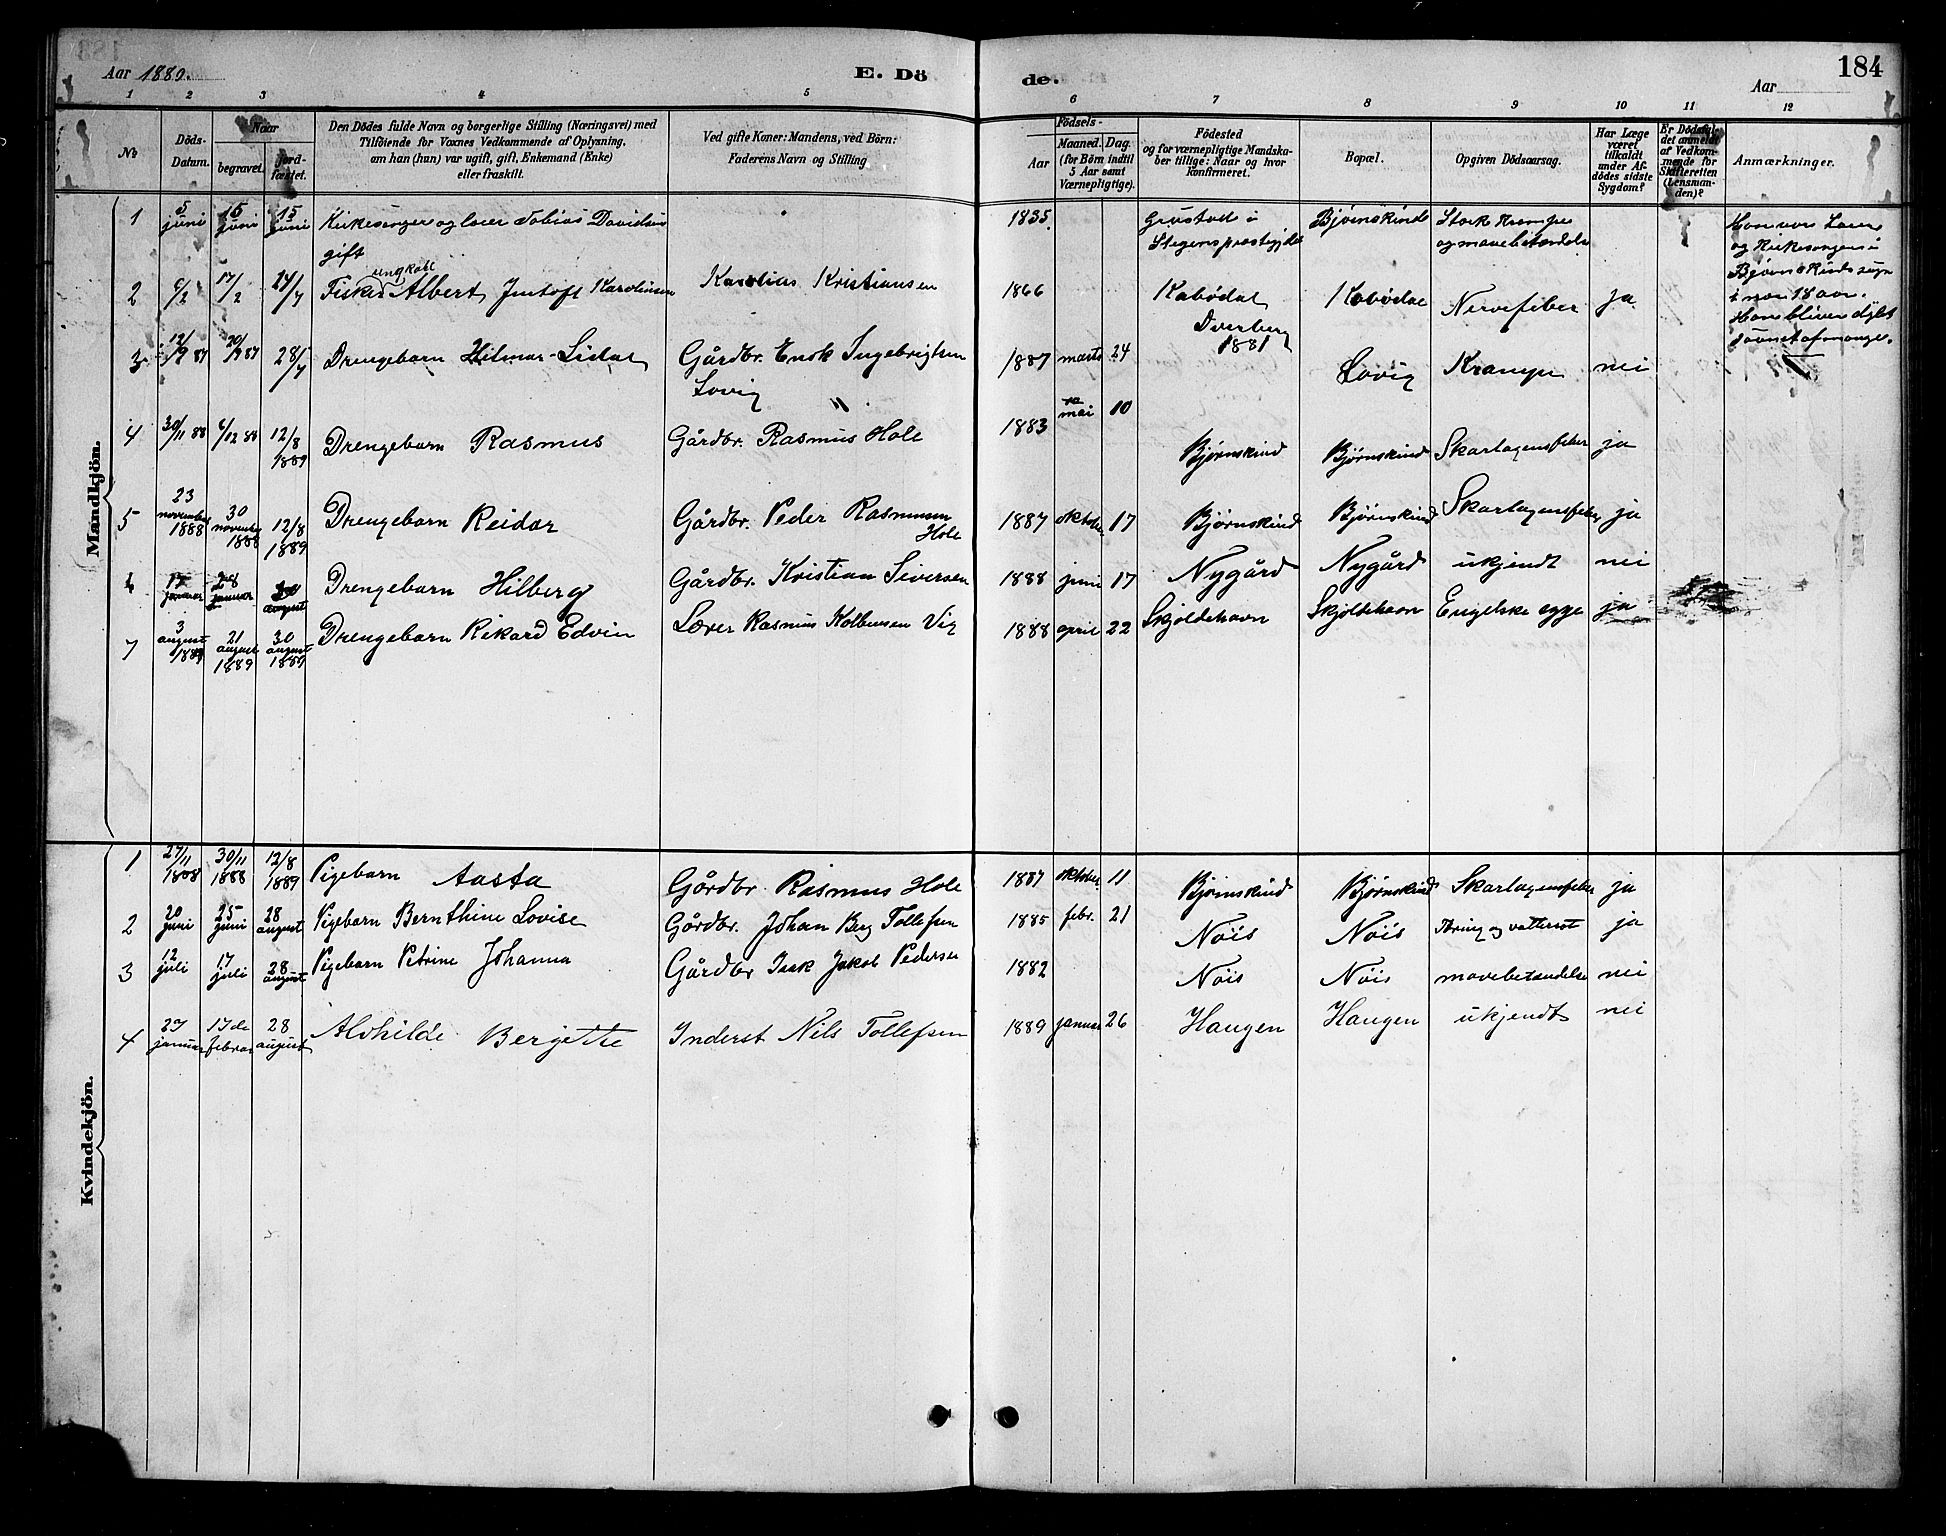 184
Aar 1889.
E. Döde.
Aar
1 2 3 4 5 6 7 8 9 10 11 12
No
Döds-Datum.
Naar
begravet.
jordfæstet.
Den Dödes fulde Navn og borgerlige Stilling (Næringsvei) med
Tilföiende for Voxnes Vedkommende af Oplysning,
om han (hun) var ugift, gift, Enkemand (Enke)
eller fraskilt.
Ved gifte Koner: Mandens, ved Börn:
Faderens Navn og Stilling.
Födsels-
Aar
Maaned. (for Börn indtil 5 Aar samt Værnepligtige).
Dag.
Födested
og for værnepligtige Mandska-
ber tillige: Naar og hvor
konfirmeret.
Bopæl.
Opgiven Dödsaarsag.
Har Læge været tilkaldt under Afdödes sidste Sygdom?
Er Dödsfaldet anmeldt af Vedkommende for Skifteretten (Lensmanden)?
Anmærkninger.
Mandkjön.
1 5 juni 15 juni 15 juni Kirkesanger og lærer Tobias Davidsen 1835 Grustad i Bjørnskind Stærk Krampe
gift Stegens præstegjeld og mavebetændelse
Han var Lærer
og Kirkesanger i
Bjørnskinds sogn
i nær 18 aar.
Han bliver dybt
savnet af mange.
ungkarl
2 6/2 17/2 24/7 Fisker Albert Jentoft Karolinsen Karolius Kristiansen 1866 Kobødal Kobødal Nervefeber ja
Dverberg
1881
3 12/9 87 20/9 87 28/7 Drengebarn Hilmar Lidal Gårdbr. Enok Ingebrigtsen 1887 marts 24 Lovig Krampe nei
Lovig
4 30/11 88 6/12 88 12/8 1889 Drengebarn Rasmus Gårdbr. Rasmus Hole 1883 mai 10 Bjørnskind Bjørnskind Skarlagensfeber ja
5 23 november 1888 30 november 1888 12/8 1889 Drengebarn Reidar Gårdbr. Peder Rasmusen 1887 oktober 17 Bjørnskind Bjørnskind Skarlagensfeber ja
Hole
6 17 januar 28 januar august Drengebarn Hilberg Gårdbr. Kristian Siversen 1888 juni 17 Nygård Nygård ukjendt nei
7 3 august 1889 21 august 1889 30 august 1889 Drengebarn Rikard Edvin Lærer Rasmus Kolbensen Vig 1888 april 22 Skjoldehavn Skjoldehavn Engelske syge ja
Kvindekjön.
1 27/11 1888 30/11 1888 12/8 1889 Pigebarn Aasta Gårdbr. Rasmus Hole 1887 oktober 11 Bjørnskind Bjørnskind Skarlagensfeber ja
2 20 juni 25 juni 28 august Pigebarn Bernthine Lovise Gårdbr. Johan Berg Tollefsen 1885 febr. 21 Nøis Nøis Tæring og vattersot ja
3 12 juli 17 juli 28 august Pigebarn Petrine Johanna Gårdbr Isak Jakob Pedersen 1882 Nøis Nøis mavebetændelse nei
4 27 januar 17de februar 28 august Alvhilde Bergette Inderst Nils Tollefsen 1889 januar 26 Haugen Haugen ukjendt nei